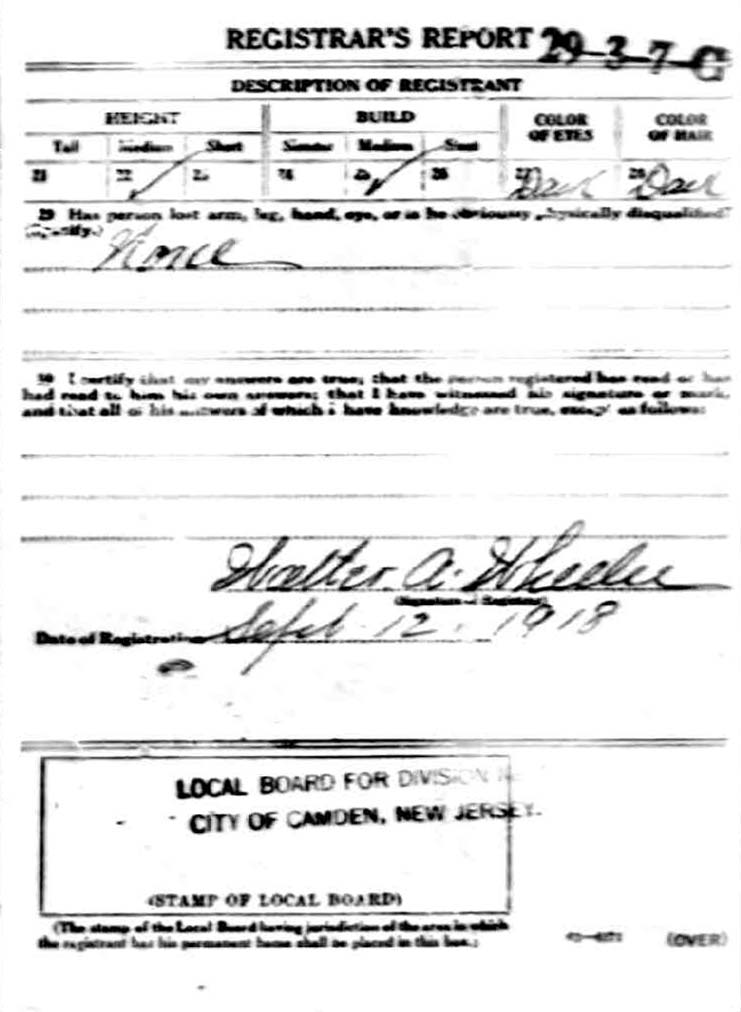 REGISTRAR'S REPORT 29-3-7-C
DESCRIPTION OF REGISTRANT
HEIGHT BUILD COLOR OF EYES COLOR OF HAIR
Tall Medium Short Slender Medium Stout
21 22 23 24 25 26 27 Dark 28 Dark
29 Has person lost arm, leg, hand, eye, or is he obviously physically disqualified?
(Specify.) None
30 I certify that my answers are true; that the person registered has read or has
had read to him his own answers; that I have witnessed his signature or mark,
and that all of his answers of which I have knowledge are true, except as follows:
Walter A. Wheeler
(Signature of Registrar)
Date of Registration Sept. 12. 1918
LOCAL BOARD FOR DIVISION
CITY OF CAMDEN, NEW JERSEY.
(STAMP OF LOCAL BOARD)
(The stamp of the Local Board having jurisdiction of the area in which
the registrant has his permanent home shall be placed in this box.)
(OVER)